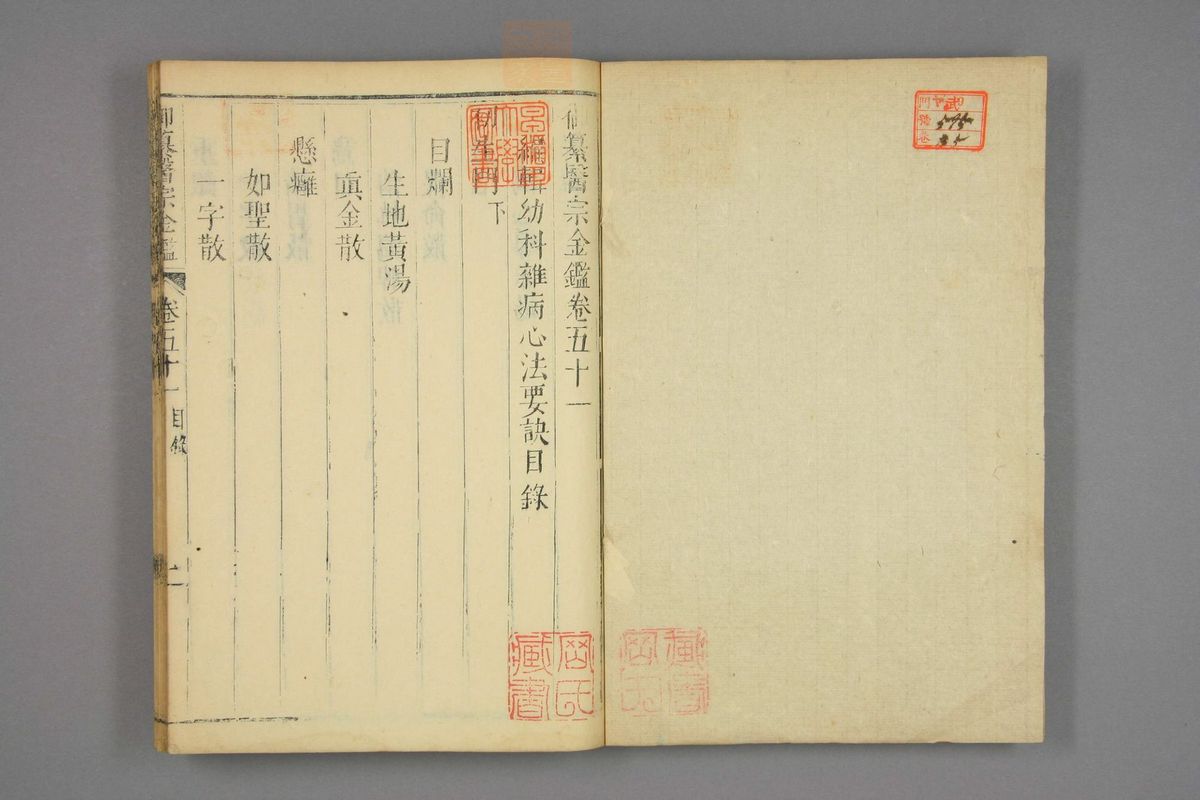 御纂醫宗金鑑卷五十一
編輯幼科雜病心法要訣目錄
初生門下
目爛
生地黃湯
真金散
懸癰
如聖散
一字散
御纂醫宗金鑑
卷五十一 目錄
一
藏書